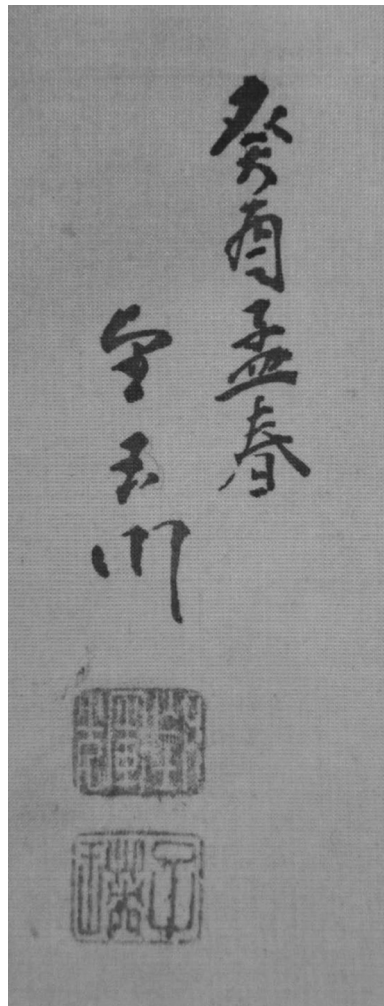 癸酉孟春
望玉川